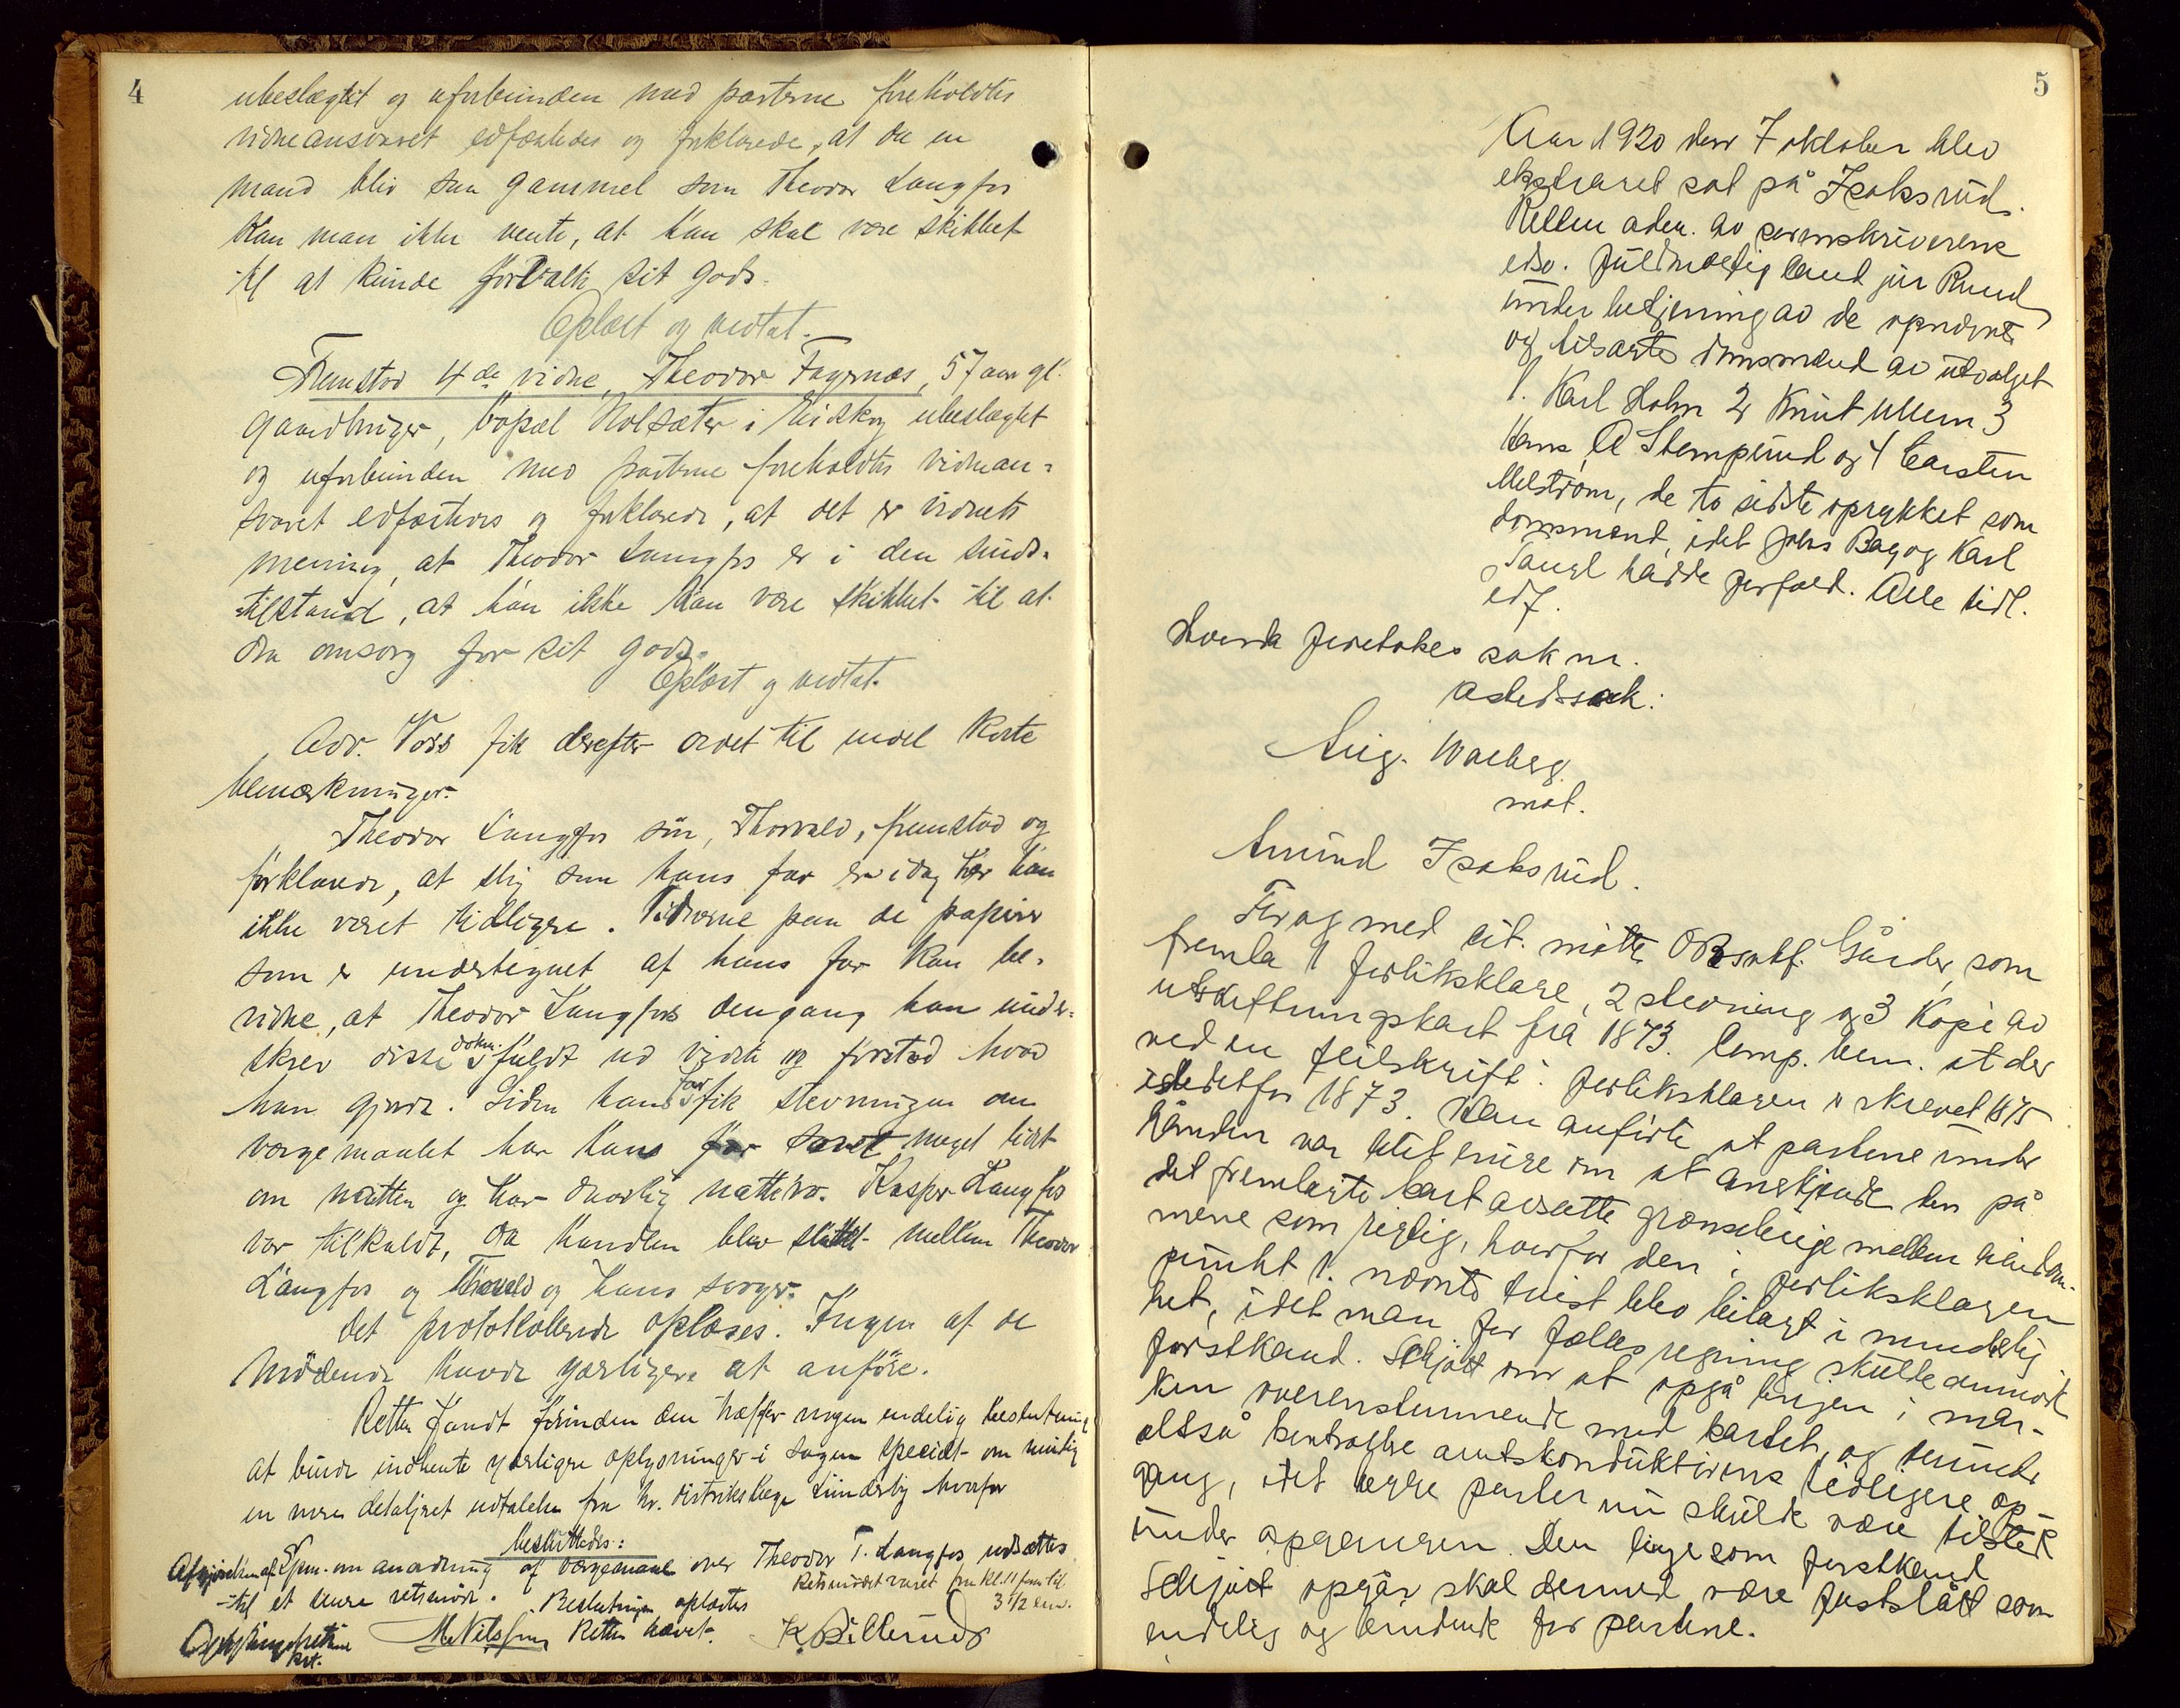 4
ubeslægtet og uforbunden med parterne foreholdtes
vidneansvaret edfæstedes og forklarede, at da en
mand bliv saa gammel som Theodor Langfos
kan man ikke vente, at han skal være skikket
til at kunde forvalte sit gods.
Oplæst og vedtat.
Fremstod 4de vidne, Theodor Fagernæs, 57 aar gl.
gaardbruger, bopæl Holsæter i Eidskog ubeslægtet
og uforbunden med parterne foreholdtes vidnean-
svaret edfæstedes og forklarede, at det er vidnets
mening, at Theodor Langfos er i den sinds-
tilstand, at han ikke kan være skikket til at
dra omsorg for sit gods.
Oplæst og vedtat.
Adv. Voss fik derefter ordet til endel korte
bemærkninger.
Theodor Langfos søn, Thorvald, fremstod og
forklarede, at slig som hans far er idag har han
ikke været tidligere. Vidnerne paa de papirer
som er undertegnet af hans far kan be-
vidne, at Theodor Langfos dengang han under-
skrev disse dokm. fuldt ud vidste og forstod hvad
han gjorde. Siden hans far fik stevningen om
værgemaalet har hans far sovet noget lidet
om natten og har daarlig nattero. Kasper Langfos
var tilkaldt, da handlen blev sluttet mellem Theodor
Langfos og Thorvald og hans svoger.
Det protokollerede oplæses. Ingen af de
mødende havde yderligere at anføre.
Retten fandt forinden den træffer nogen endelig beslutning
at burde indhente yderligere oplysninger i sagen specielt om mulig
en mere detaljeret udtalelse fra hr. distriktslæge Sünderby hvorfor
besluttedes:
Afgjørelsen af Spm. om anordning af værgemaal over Theodor T. Langfos udsættes
til et senere retsmøde. Beslutningen oplæstes
Retsmødet varet fra Kl. 11 fm til
3 1/2 em.
Retten hævet.
M. Nilssen K. Billerud
5
Aar 1920 den 7 oktober blev
ekstraret sat på Isaksrud.
Retten adm. av sorenskriverens
edsv. fuldmægtig cand jur Ruud
under betjening av de opnævnte
og tilsagte domsmænd av utvalget
1. Karl Holm 2 Knut Ullern 3
Hans A Stempund og 4 Carsten
Melstrøm, de to sidste oprykket som
domsmænd, idet Johs Bag og Karl
hadde forfald. Alle tidl.
edf.
Hvorda foretokes sak nr.
åstedssak:
Aug. Warberg
mot.
Amund Isaksrud.
For og med cit. møtte ORsakf. Gårder, som
fremla 1 forliksklage, 2 stevning og 3 Kopi av
utskiftningskart fra 1873. Comp. bem. at der
ved en feilskrift i forliksklagen er skrevet 1875
istedetfor 1873. Han anførte at partene under
hånden var blit enige om at anerkjende den på
det fremlagte kart avsatte grænselinje mellem eiendom-
mene som rigtig, hvorfor den i forliksklagen
punkt 1. nævnte tvist blev bilagt i mindelig-
het, idet man for fælles regning skulde anmode
forstkand. Schjøtt om at opgå linjen i mar-
ken overensstemmende med kartet, og kunde
altså kontrollere amtskonduktørens tidligere op-
gang, idet begge parter nu skulde være tilstede
under opgangen. Den linje som forstkand
Schjøtt opgår skal dermed være fastslått som
endelig og bindende for partene.